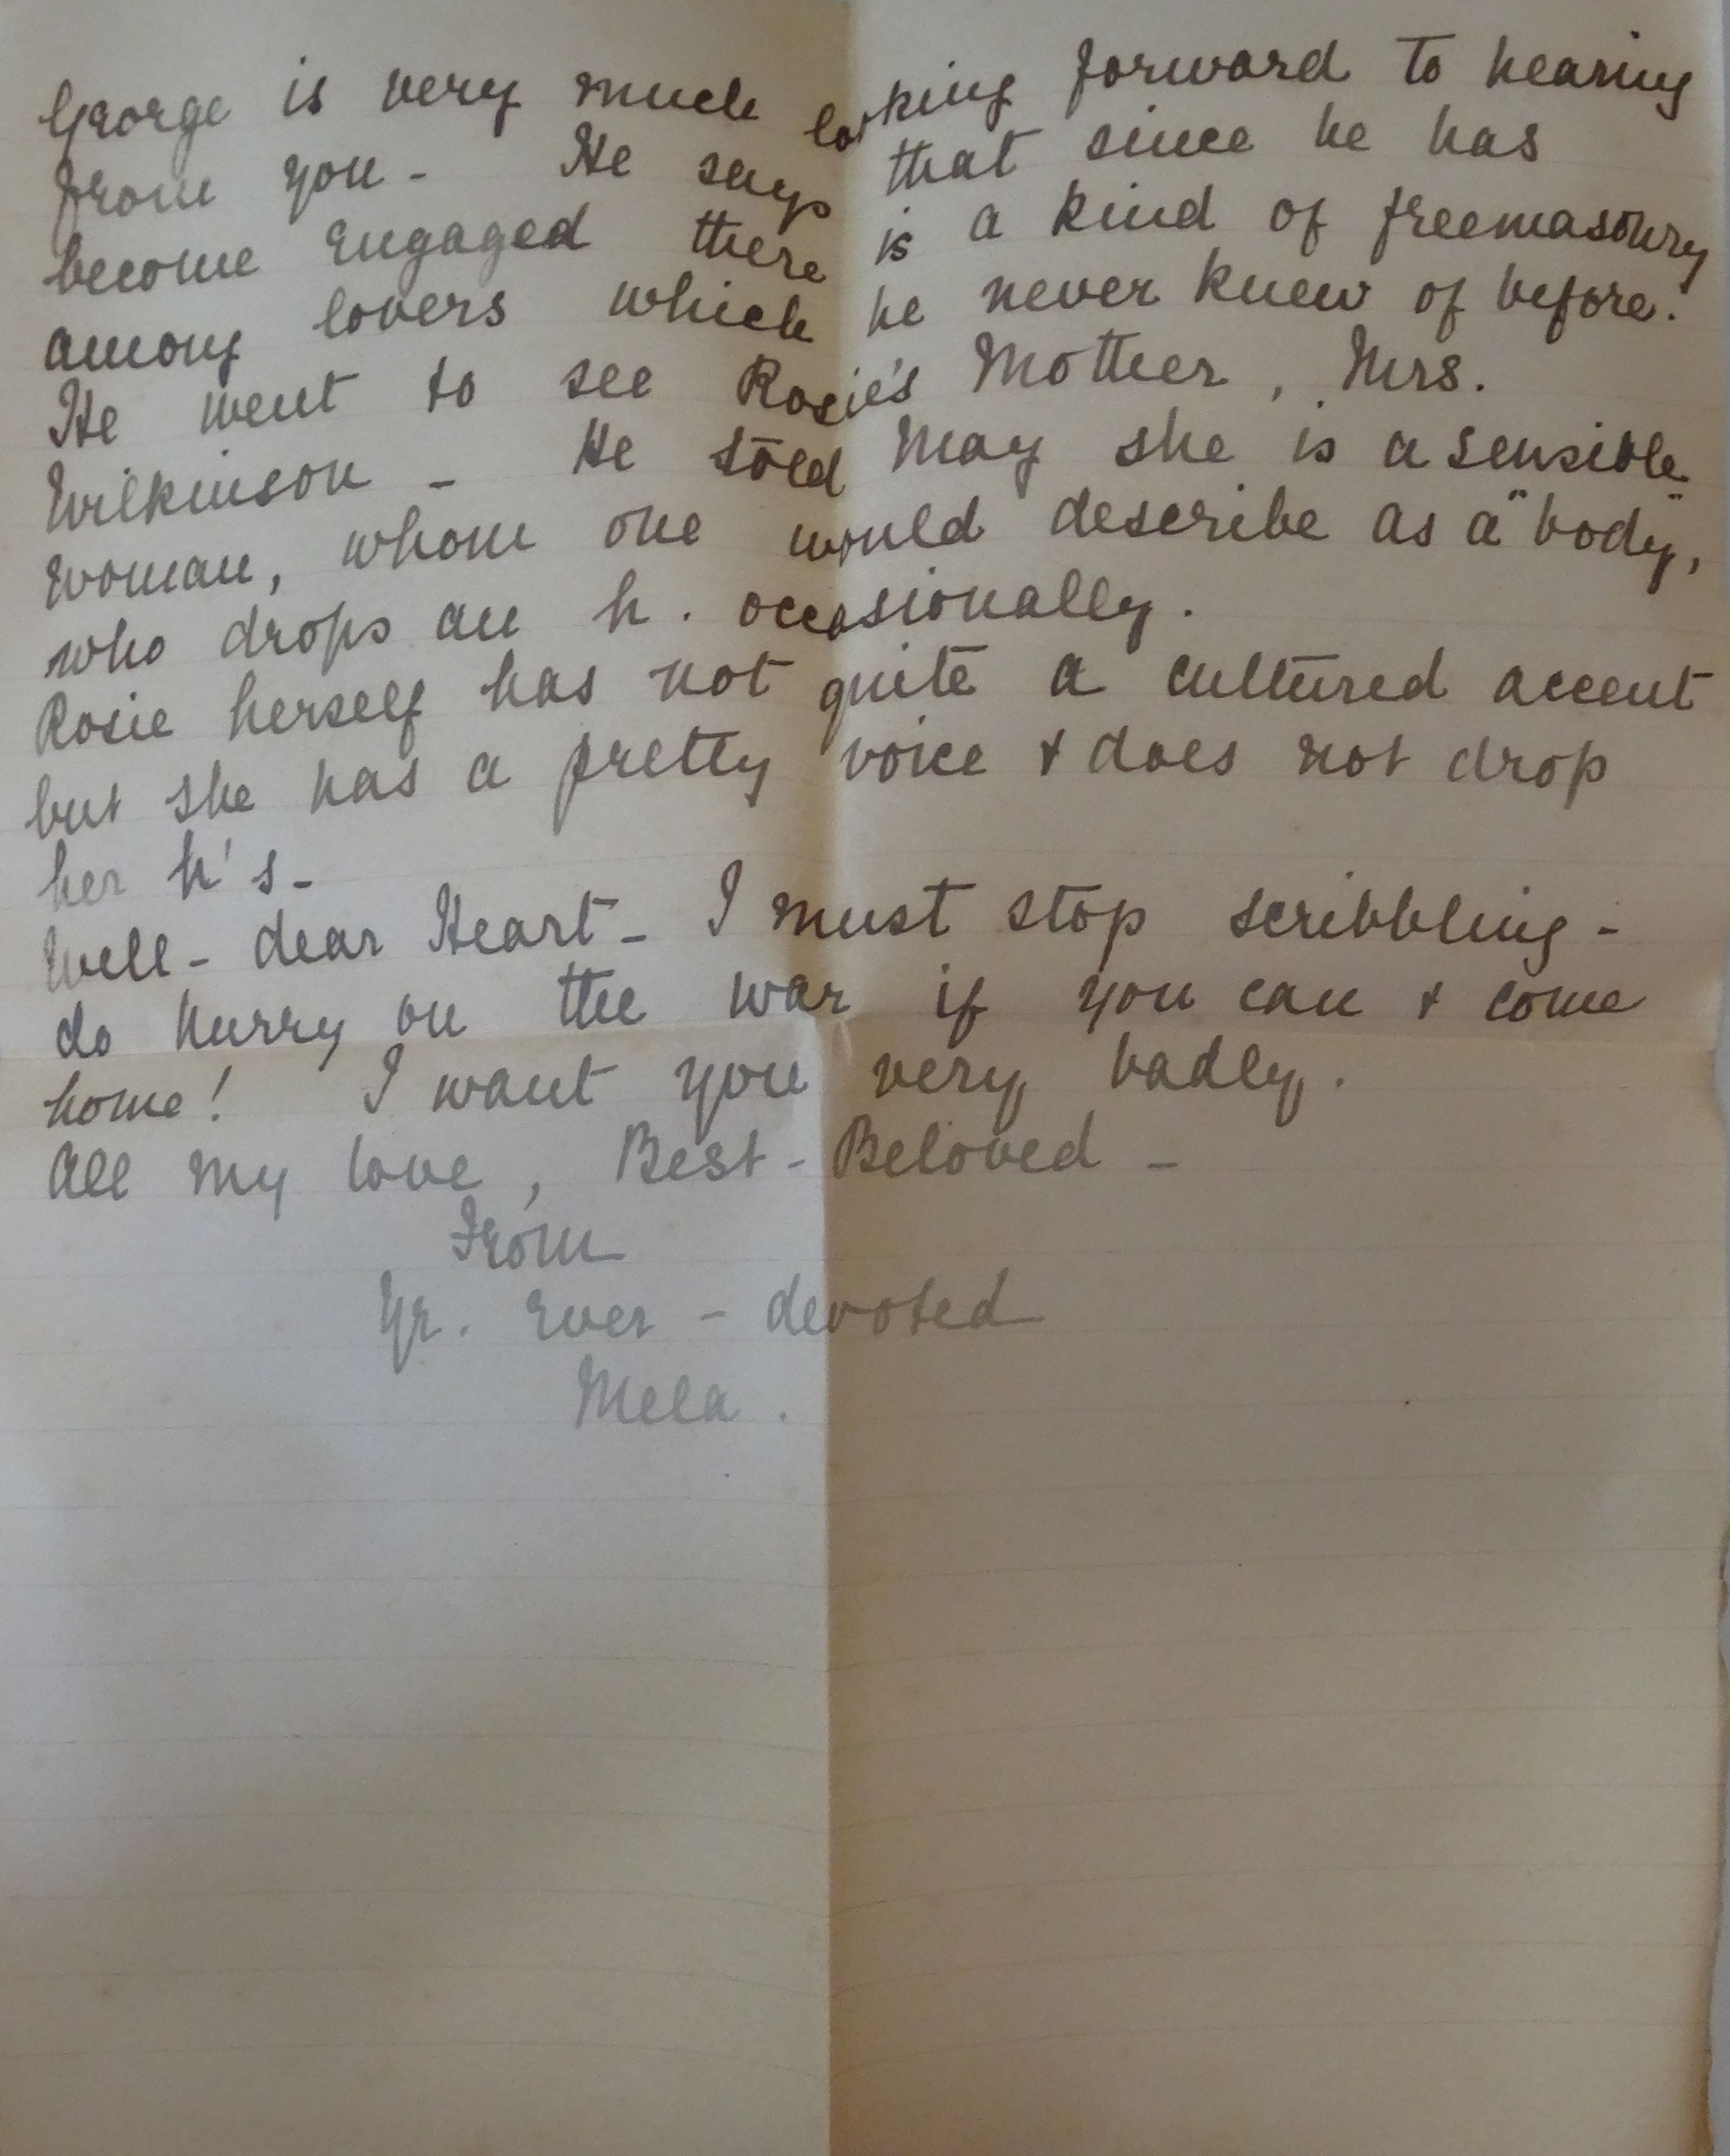 George is very much looking forward to hearing
from you - He says that since he has
become engaged there is a kind of freemasonry
among lovers which he never knew of before.
He went to see Rosie's Mother, Mrs.
Wilkinson - He told May she is a sensible
woman, whom one would describe as a "body",
who drops an h. occasionally.
Rosie herself has not quite a cultured accent
but she has a pretty voice & does not drop
her h's -
Well - dear Heart - I must stop scribbling -
do hurry on the war if you can & come
home! I want you very badly.
All my love, Best-Beloved -
From
Yr. Ever - devoted
Mela.